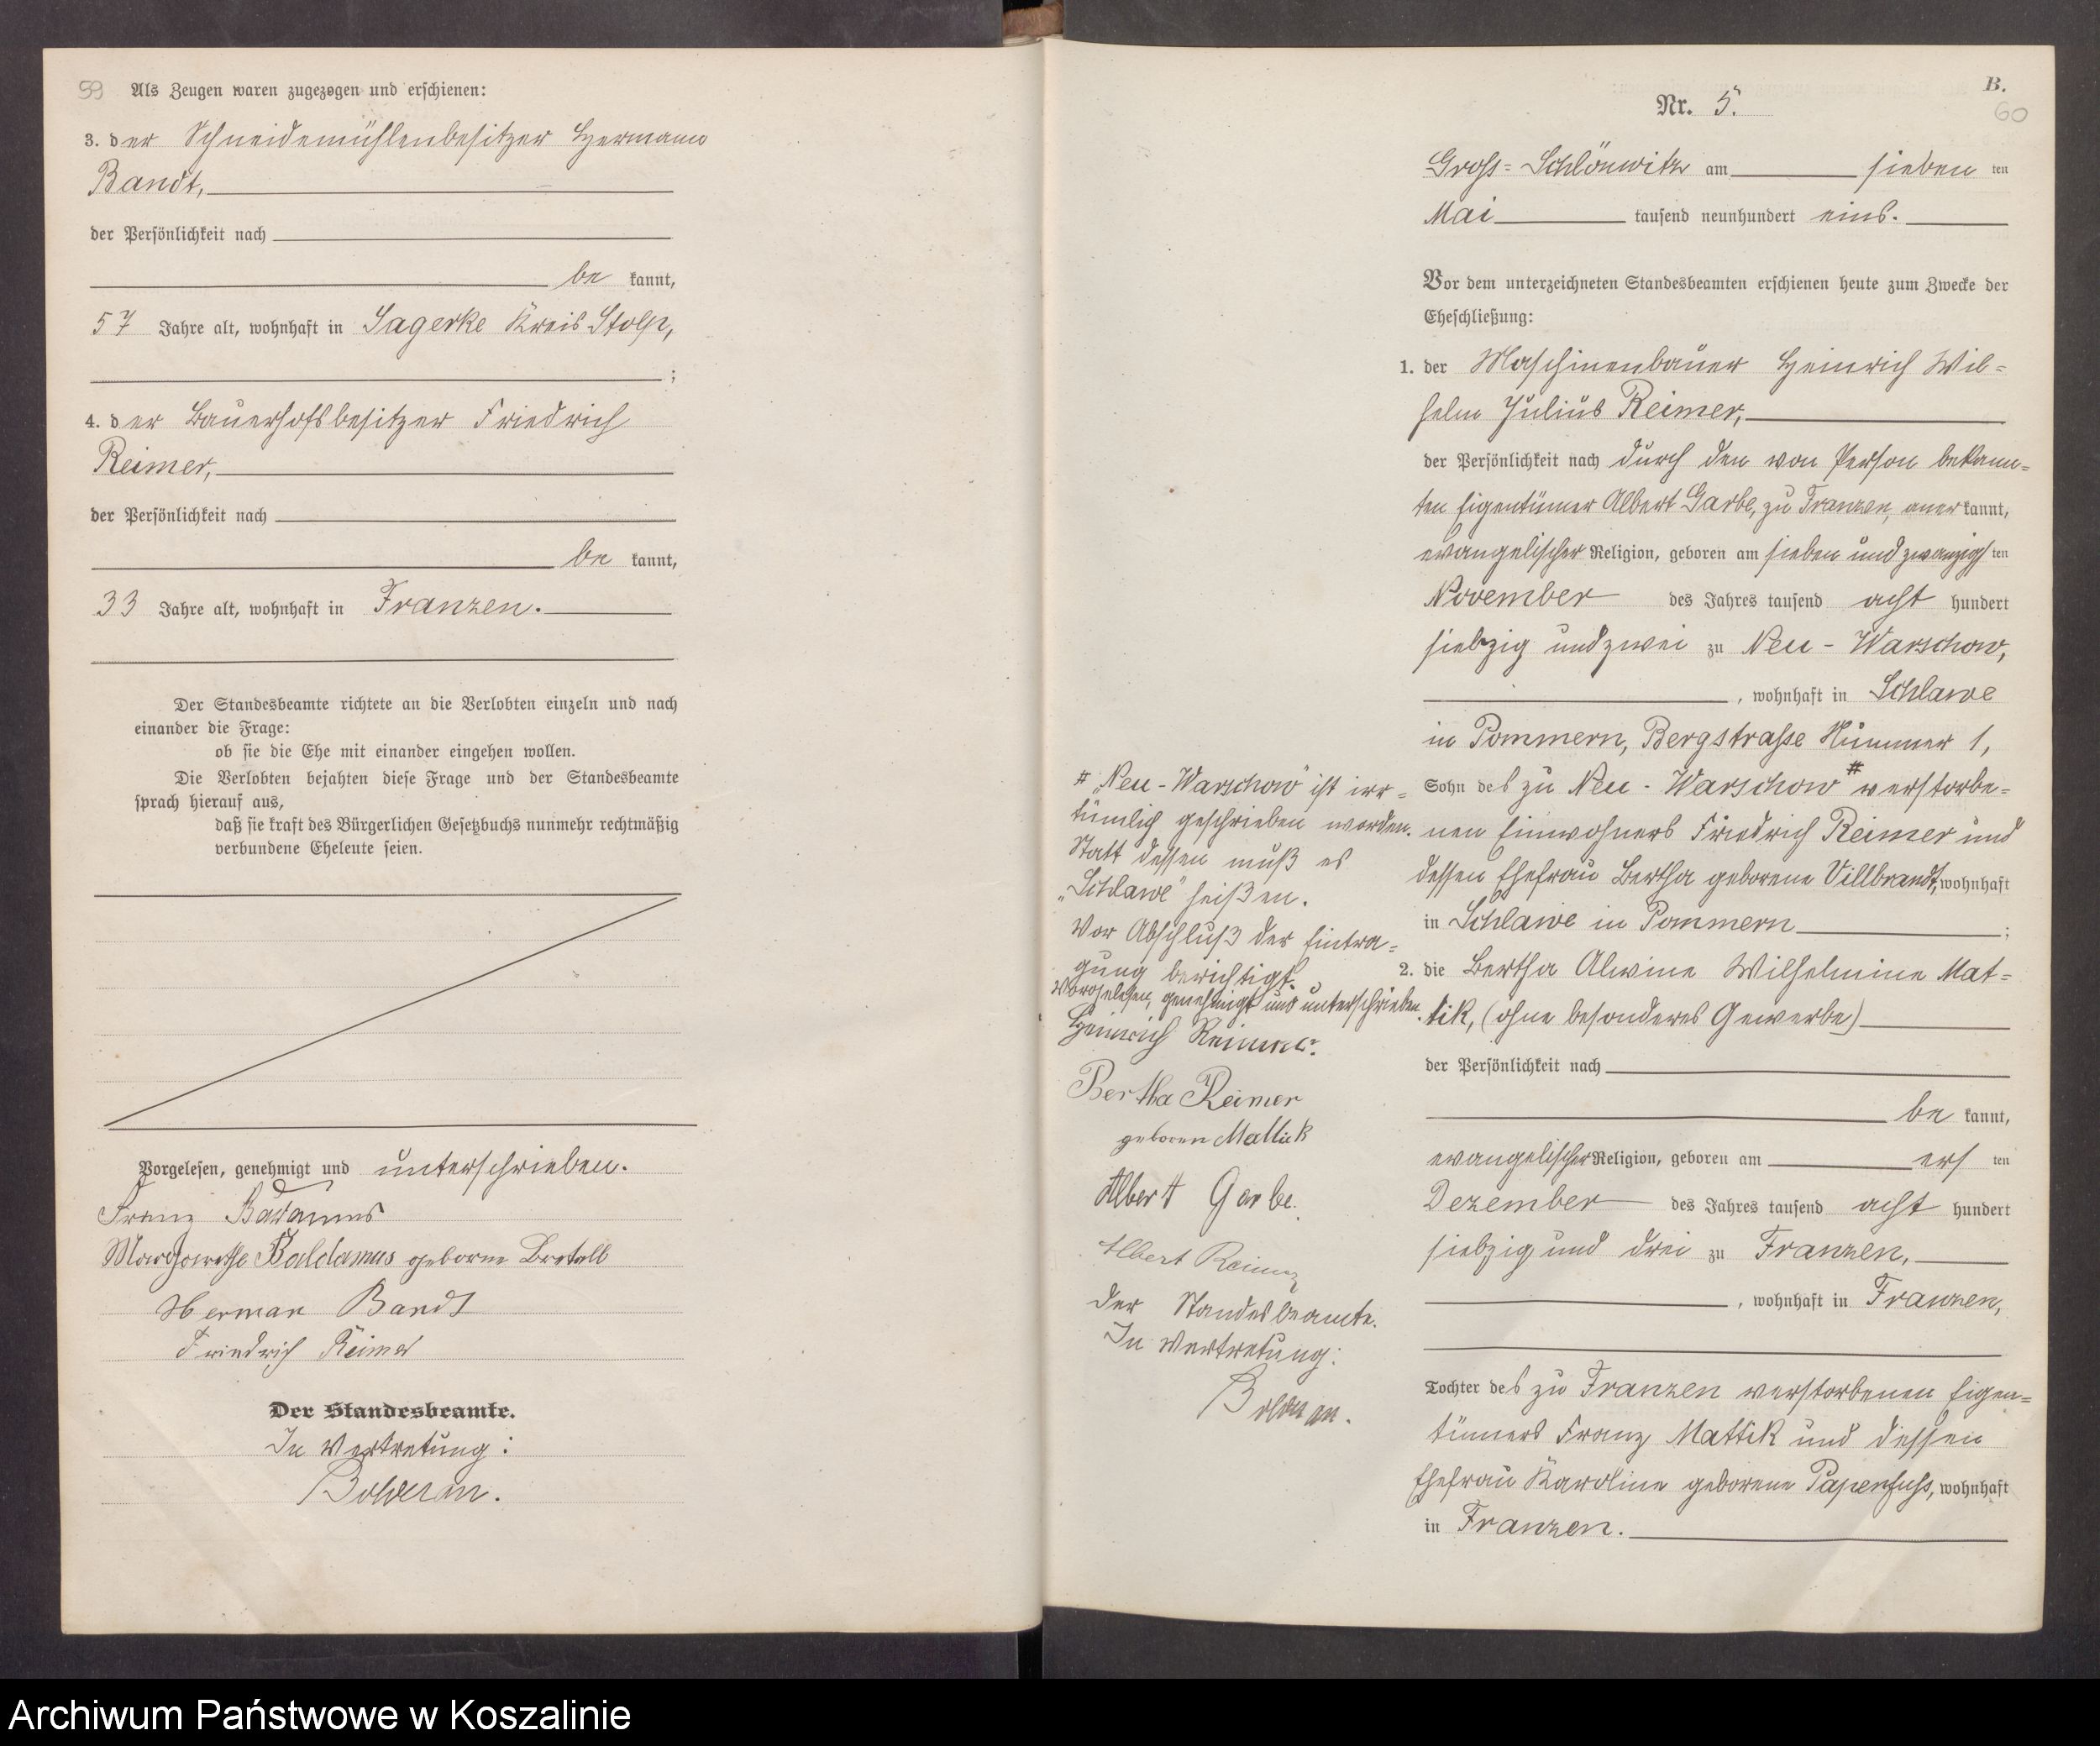 59
Als Zeugen waren zugezogen und erschienen:
3. der Schneidemühlenbesitzer Hermann
Bandt,
der Persönlichkeit nach
be kannt,
57 Jahre alt, wohnhaft in Sagerke Kreis Stolp,
;
4. der Bauerhofsbesitzer Friedrich
Reimer,
der Persönlichkeit nach
be kannt,
33 Jahre alt, wohnhaft in Franzen.
Der Standesbeamte richtete an die Verlobten einzeln und nach
einander die Frage:
ob sie die Ehe mit einander eingehen wollen.
Die Verlobten bejahten diese Frage und der Standesbeamte
sprach hierauf aus,
daß sie kraft des Bürgerlichen Gesetzbuchs nunmehr rechtmäßig
verbundene Eheleute seien.
Vorgelesen, genehmigt und unterschrieben.
Franz Baldamus
Baldamus geborne
Herman Bandt
Friedrich Reimer
Der Standesbeamte.
In Vertretung:
B.
60
Nr. 5.
Gross-Schlönwitz am sieben ten
Mai tausend neunhundert eins.
Vor dem unterzeichneten Standesbeamten erschienen heute zum Zwecke der
Eheschließung:
1. der Maschinenbauer Heinrich Wil=
helm Julius Reimer,
der Persönlichkeit nach durch den von Person bekann=
ten Eigentümer Albert Garbe, zu Franzen, aner kannt,
evangelischer Religion, geboren am sieben und zwanzigs ten
November des Jahres tausend acht hundert
siebzig und zwei zu Neu-Warschow,
, wohnhaft in Schlawe
in Pommern, Bergstrasse Nummer 1,
Sohn des zu Neu-Warschow # verstorbe=
nen Einwohners Friedrich Reimer und
dessen Ehefrau Bertha geborene Villbrandt, wohnhaft
in Schlawe in Pommern ;
2. die Bertha Alwine Wilhelmine Mat=
tik, (ohne besonderes Gewerbe)
der Persönlichkeit nach
be kannt,
evangelischer Religion, geboren am ers ten
Dezember des Jahres tausend acht hundert
siebzig und drei zu Franzen,
, wohnhaft in Franzen,
Tochter des zu Franzen verstorbenen Eigen=
tümers Franz Mattik und dessen
Ehefrau Karoline geborene Papenfuss, wohnhaft
in Franzen.
# „Neu-Warschow" ist irr=
tümlich geschrieben worden.
Statt dessen muß es
„Schlawe" heißen.
Vor Abschluß der Eintra=
gung berichtigt.
Vorgelesen, genehmigt und unterschrieben.
Heinrich Reimer.
Bertha Reimer
geboren Mattik
Albert Garbe.
Albert Reimer
Der Standesbeamte.
In Vertretung:
Archiwum Państwowe w Koszalinie